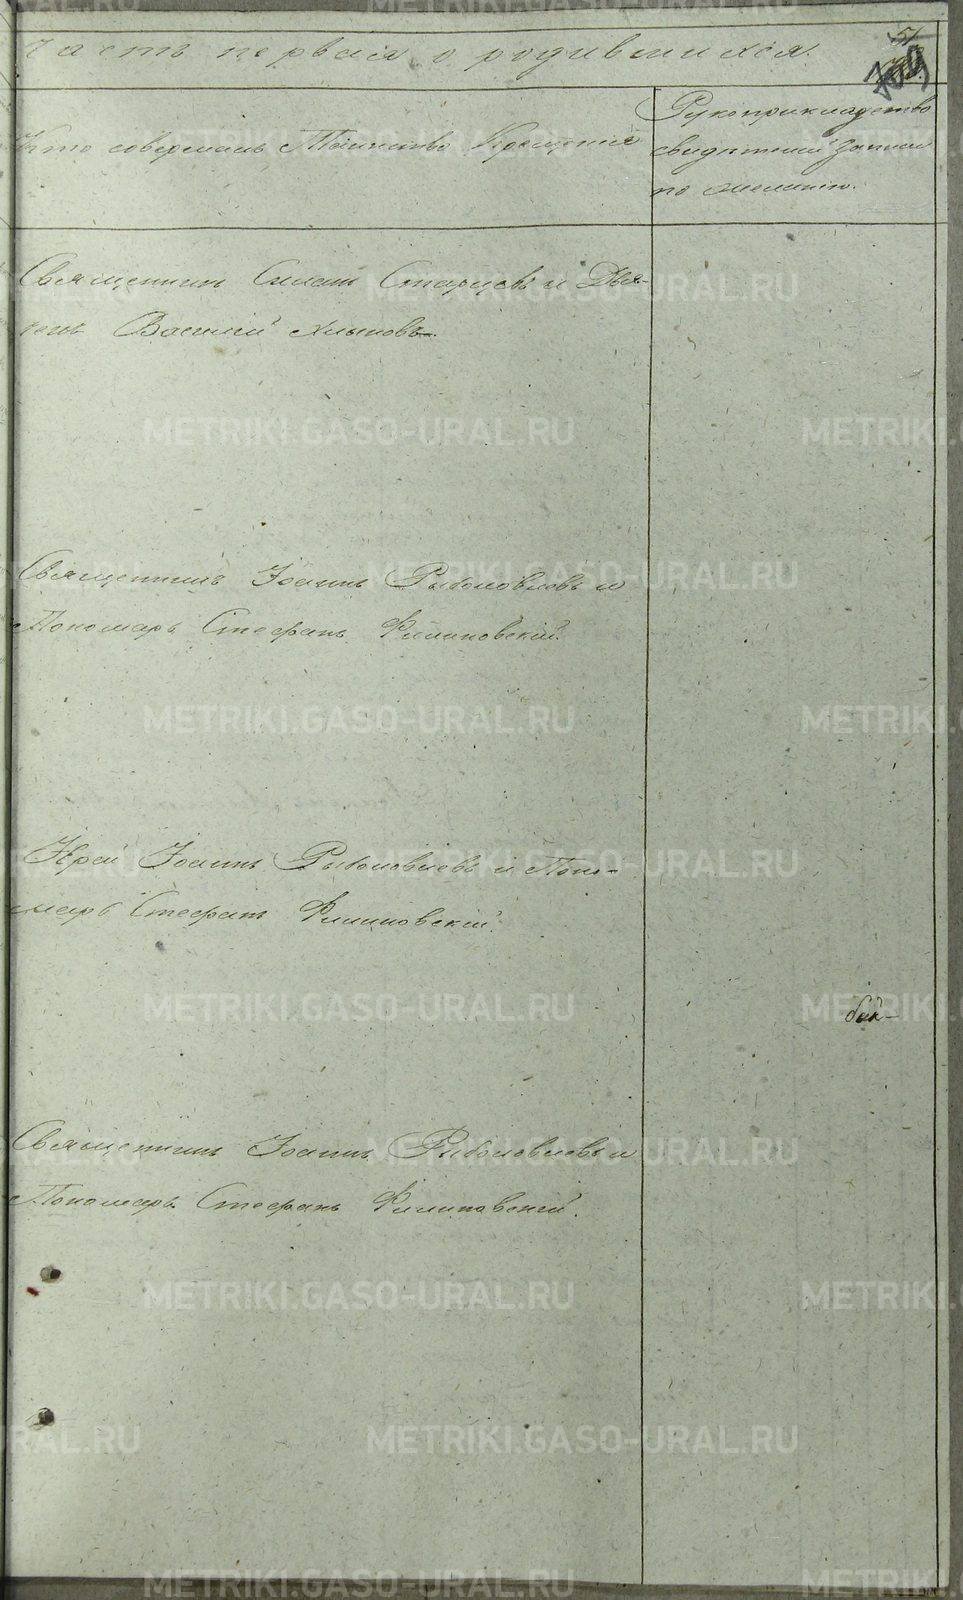 Часть первая о родившихся.
Кто совершалъ Таинство Крещенія
Рукоприкладство
свидѣтелей записи
по желанію.
Священникъ Старцовъ и Дья-
конъ Василій Хлыновъ.
Священникъ Іоаннъ Рыболовлевъ и
Пономарь Стефанъ Филиповскій.
Іерей Іоаннъ Рыболовлевъ и Поно-
марь Стефанъ Филиповскій.
Священникъ Іоаннъ Рыболовлевъ и
Пономарь Стефанъ Филиповскій.
METRIKI.GASO-URAL.RU